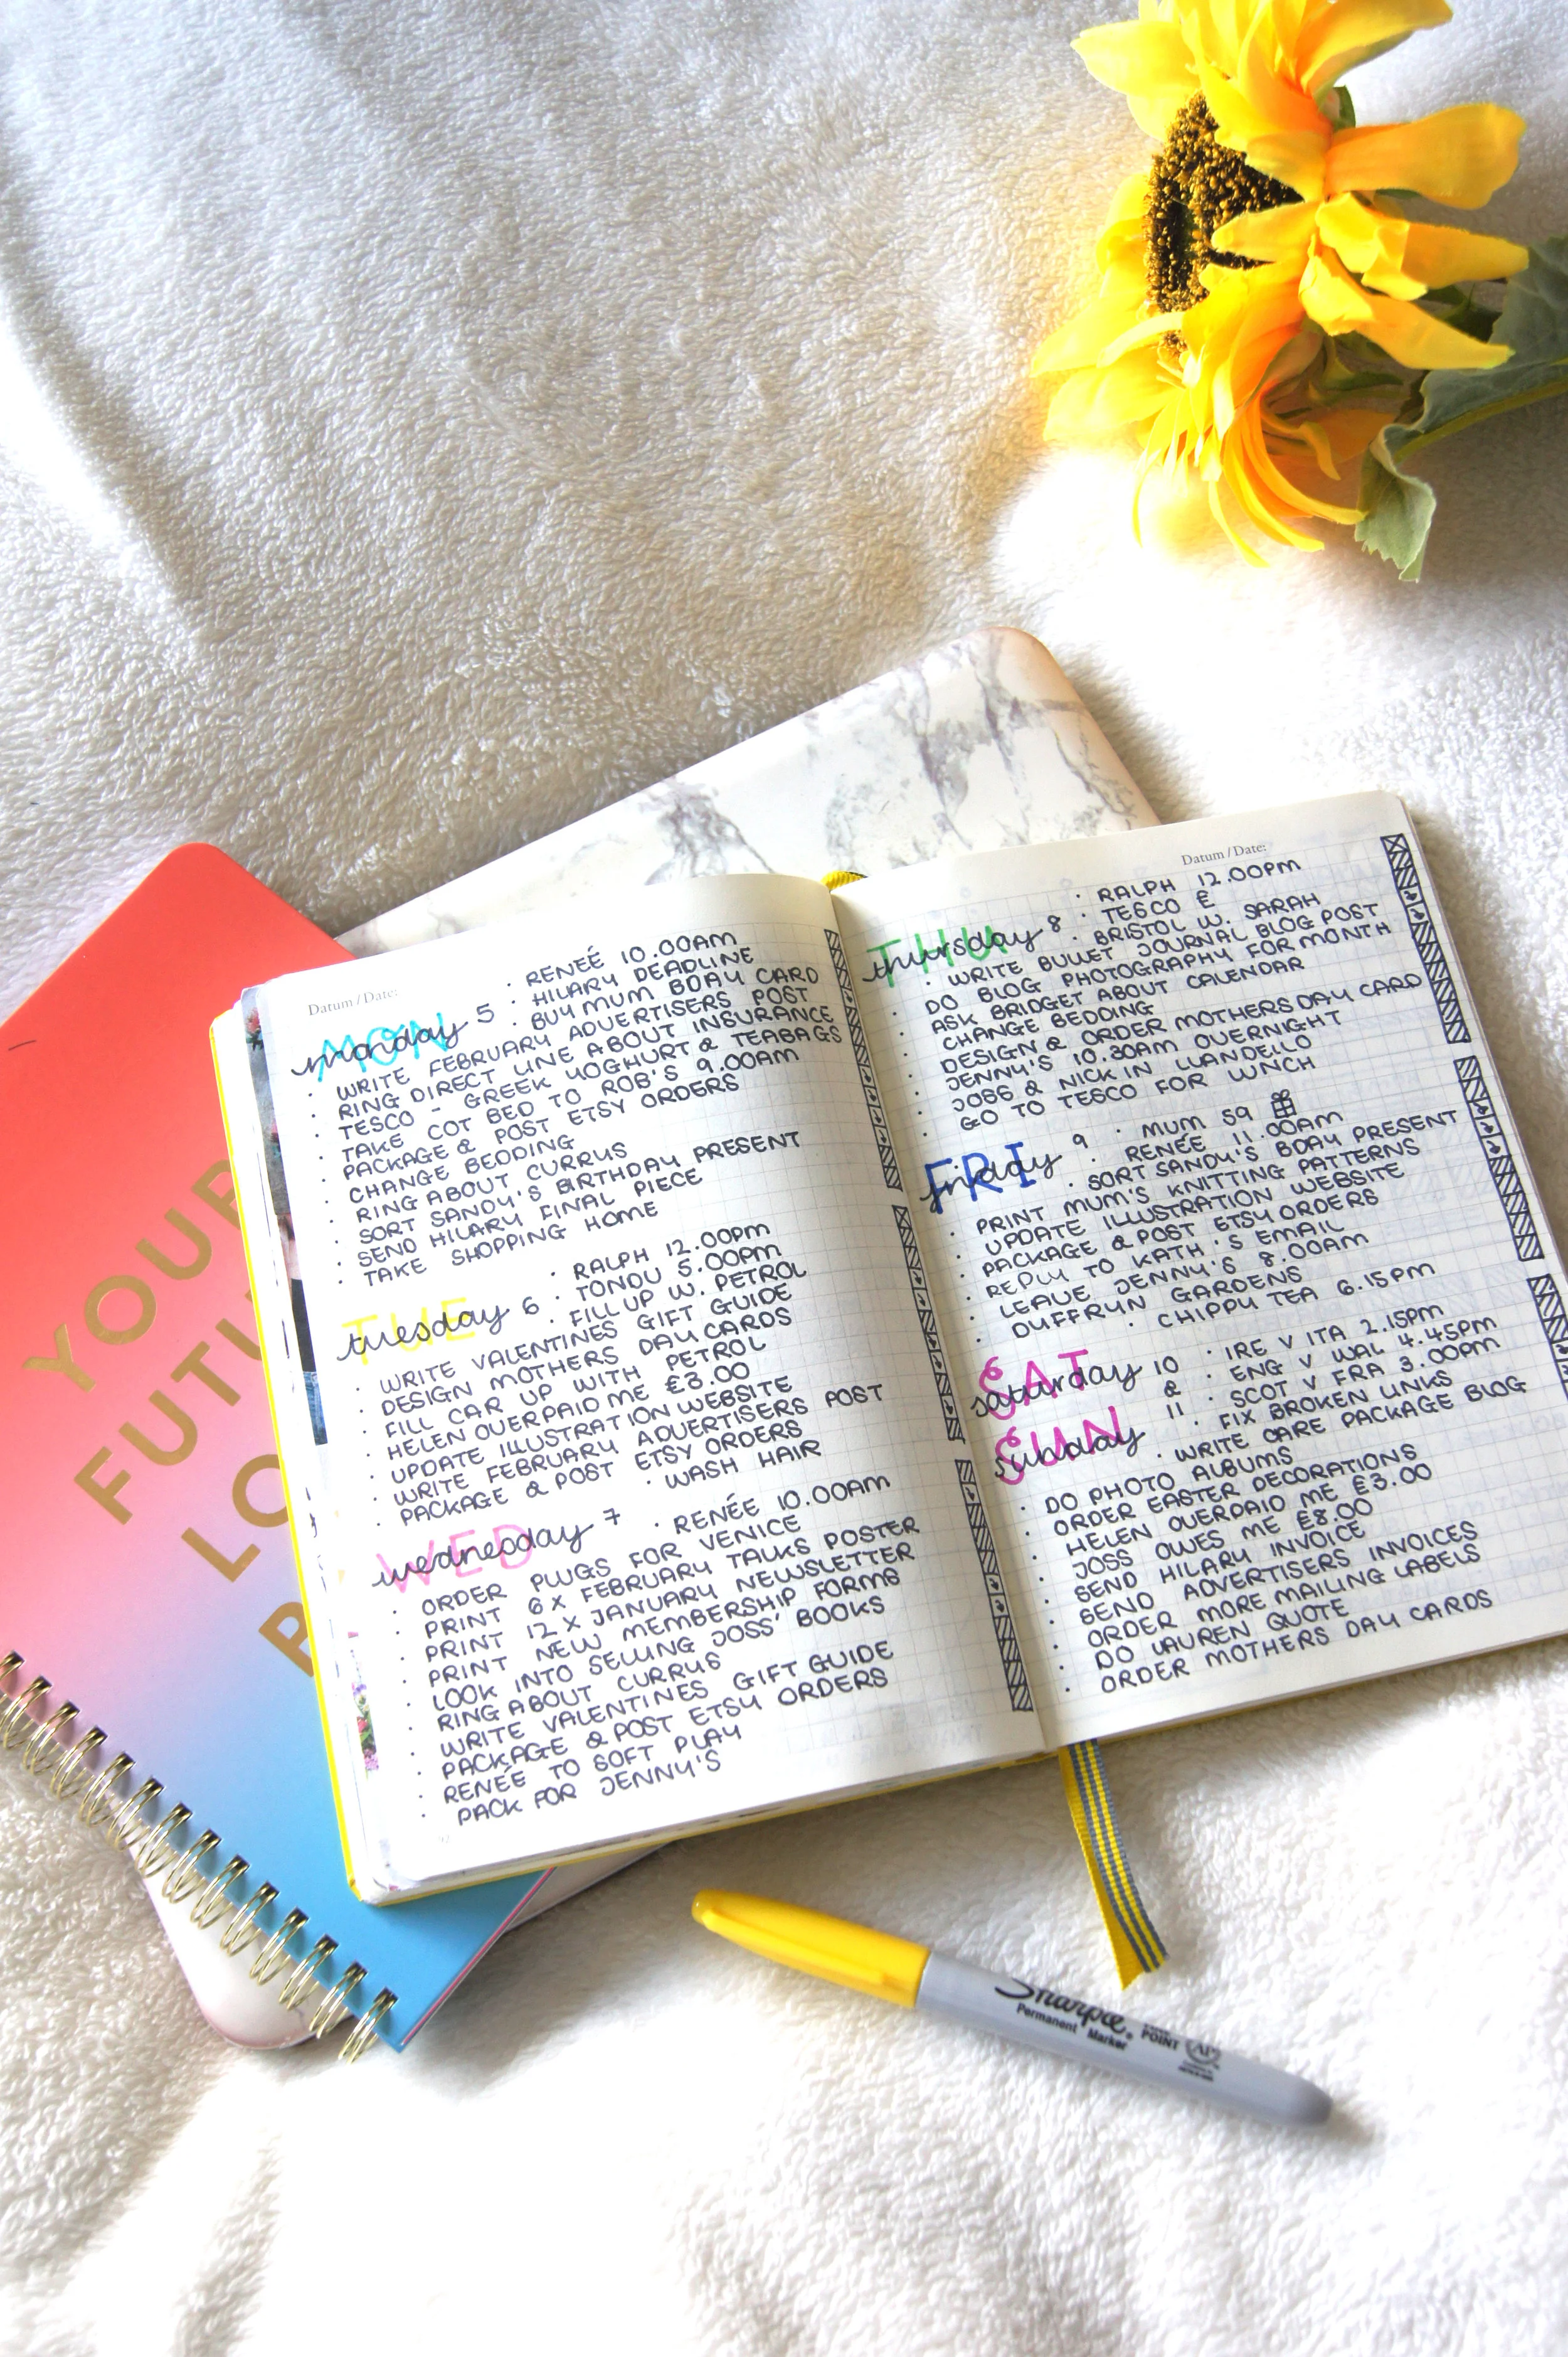 YOUR
FUTU
LO
B
Datum / Date:
MON
monday 5
· RENEÉ 10.00AM
· HILARY DEADLINE
· BUY MUM BDAY CARD
· WRITE FEBRUARY ADVERTISERS POST
· RING DIRECT LINE ABOUT INSURANCE
· TESCO - GREEK YOGHURT & TEABAGS
· TAKE COT BED TO ROB'S 9.00AM
· PACKAGE & POST ETSY ORDERS
· CHANGE BEDDING
· RING ABOUT CURRUS
· SORT SANDY'S BIRTHDAY PRESENT
· SEND HILARY FINAL PIECE
· TAKE SHOPPING HOME
TUE
tuesday 6
· RALPH 12.00PM
· TONDU 5.00PM
· FILL UP W. PETROL
· WRITE VALENTINES GIFT GUIDE
· DESIGN MOTHERS DAY CARDS
· FILL CAR UP WITH PETROL
· HELEN OVERPAID ME £3.00
· UPDATE ILLUSTRATION WEBSITE
· WRITE FEBRUARY ADVERTISERS POST
· PACKAGE & POST ETSY ORDERS
· WASH HAIR
WED
wednesday 7
· RENÉE 10.00AM
· ORDER PLUGS FOR VENICE
· PRINT 6 X FEBRUARY TALKS POSTER
· PRINT 12 X JANUARY NEWSLETTER
· PRINT NEW MEMBERSHIP FORMS
· LOOK INTO SELLING JOSS' BOOKS
· RING ABOUT CURRUS
· WRITE VALENTINES GIFT GUIDE
· PACKAGE & POST ETSY ORDERS
· RENÉE TO SOFT PLAY
· PACK FOR JENNY'S
Datum / Date:
THU
thursday 8
· RALPH 12.00PM
· TESCO £
· BRISTOL W. SARAH
· WRITE BULLET JOURNAL BLOG POST
· DO BLOG PHOTOGRAPHY FOR MONTH
· ASK BRIDGET ABOUT CALENDAR
· CHANGE BEDDING
· DESIGN & ORDER MOTHERS DAY CARD
· JENNY'S 10.30AM OVERNIGHT
· JOSS & NICK IN LLANDELLO
· GO TO TESCO FOR LUNCH
FRI
friday 9
· MUM 59
· RENÉE 11.00AM
· SORT SANDY'S BDAY PRESENT
· PRINT MUM'S KNITTING PATTERNS
· UPDATE ILLUSTRATION WEBSITE
· PACKAGE & POST ETSY ORDERS
· REPLY TO KATH'S EMAIL
· LEAVE JENNY'S 8.00AM
· DUFFRYN GARDENS
· CHIPPY TEA 6.15PM
SAT
saturday 10
&
SUN
sunday 11
· IRE V ITA 2.15PM
· ENG V WAL 4.45PM
· SCOT V FRA 3.00PM
· FIX BROKEN LINKS
· WRITE CARE PACKAGE BLOG
· DO PHOTO ALBUMS
· ORDER EASTER DECORATIONS
· HELEN OVERPAID ME £3.00
· JOSS OWES ME £8.00
· SEND HILARY INVOICE
· SEND ADVERTISERS INVOICES
· ORDER MORE MAILING LABELS
· DO LAUREN QUOTE
· ORDER MOTHERS DAY CARDS
Sharpie
Permanent Marker
POINT
AP